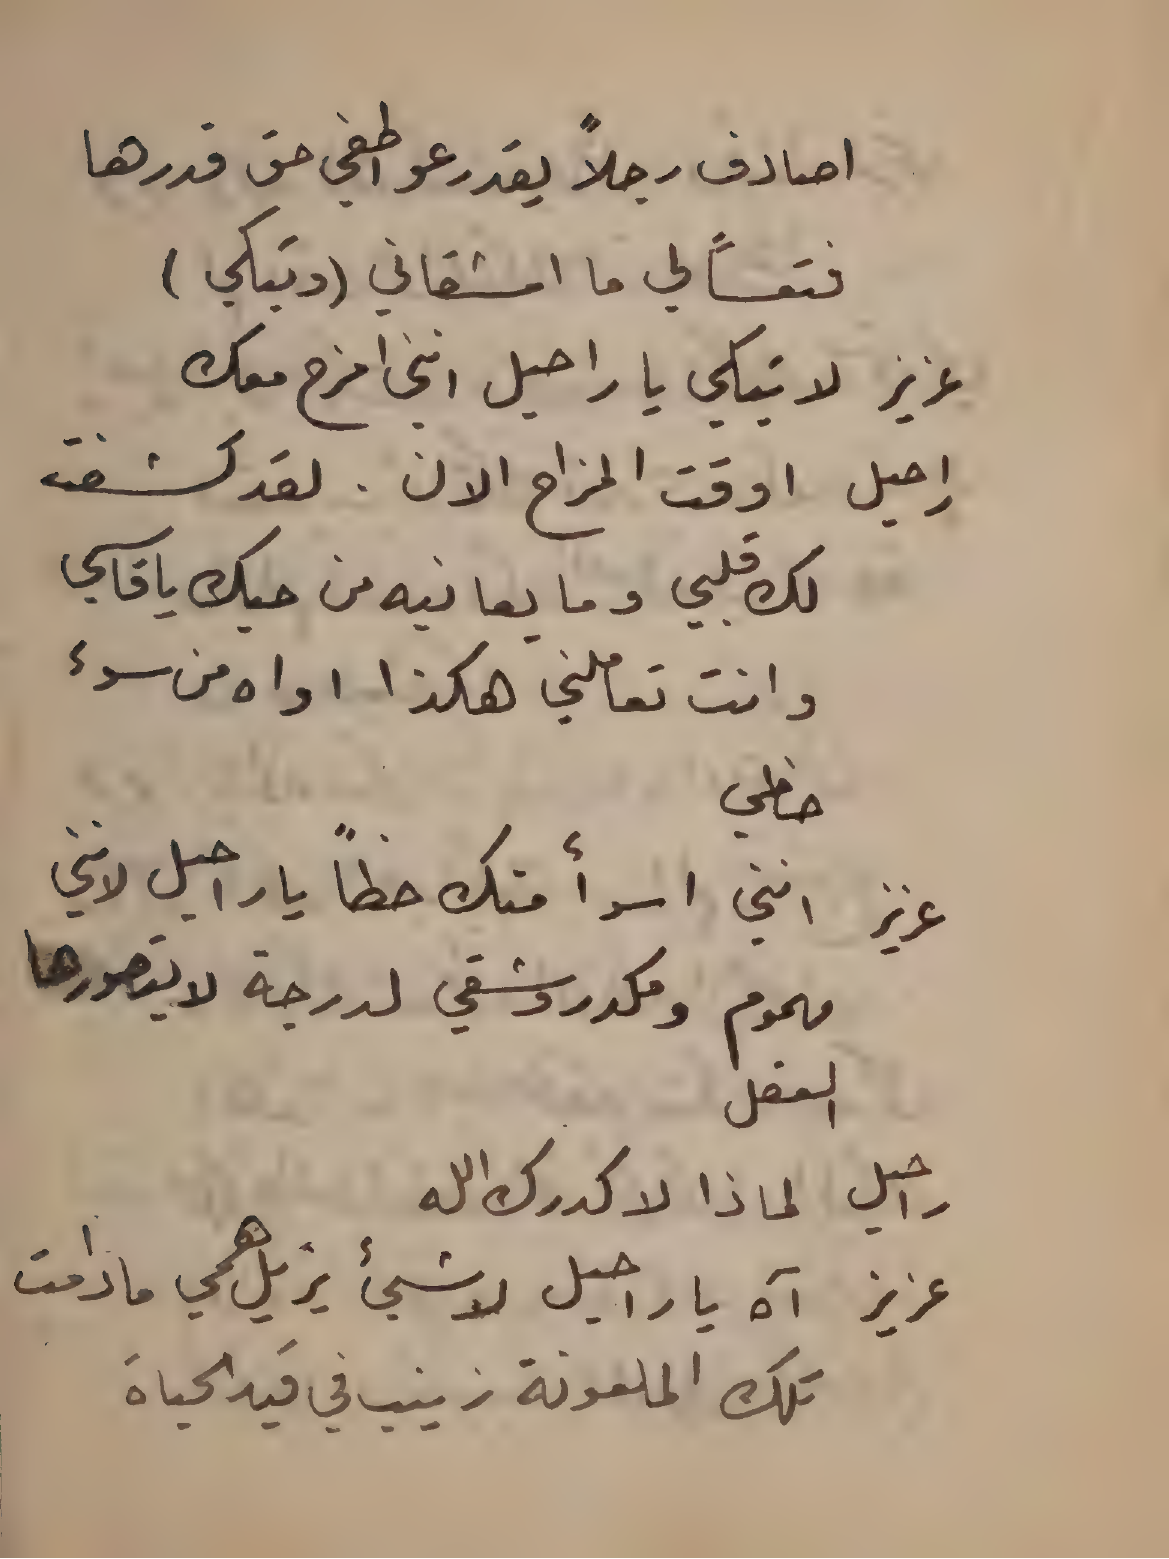 اصادف رجلاً يقدر عواطفي حق قدرها
فتعساً لي ما اشقاني (وتبكي)
عزيز لا تبكي يا راحيل انني امزح معك
راحيل اوقت المزاح الان . لقد كشفت
لك قلبي وما يعانيه من حبك يا قاسي
وانت تعاملني هكذا اواه من سوء
حظي
عزيز انني اسوأ منك حظاً يا راحيل لانني
مهموم ومكدر وشقي لدرجة لا يتصورها
العقل
راحيل لماذا لا كدرك الله
عزيز آه يا راحيل لا شيئ يزيل همي ما دامت
تلك الملعونة زينب في قيد الحياة